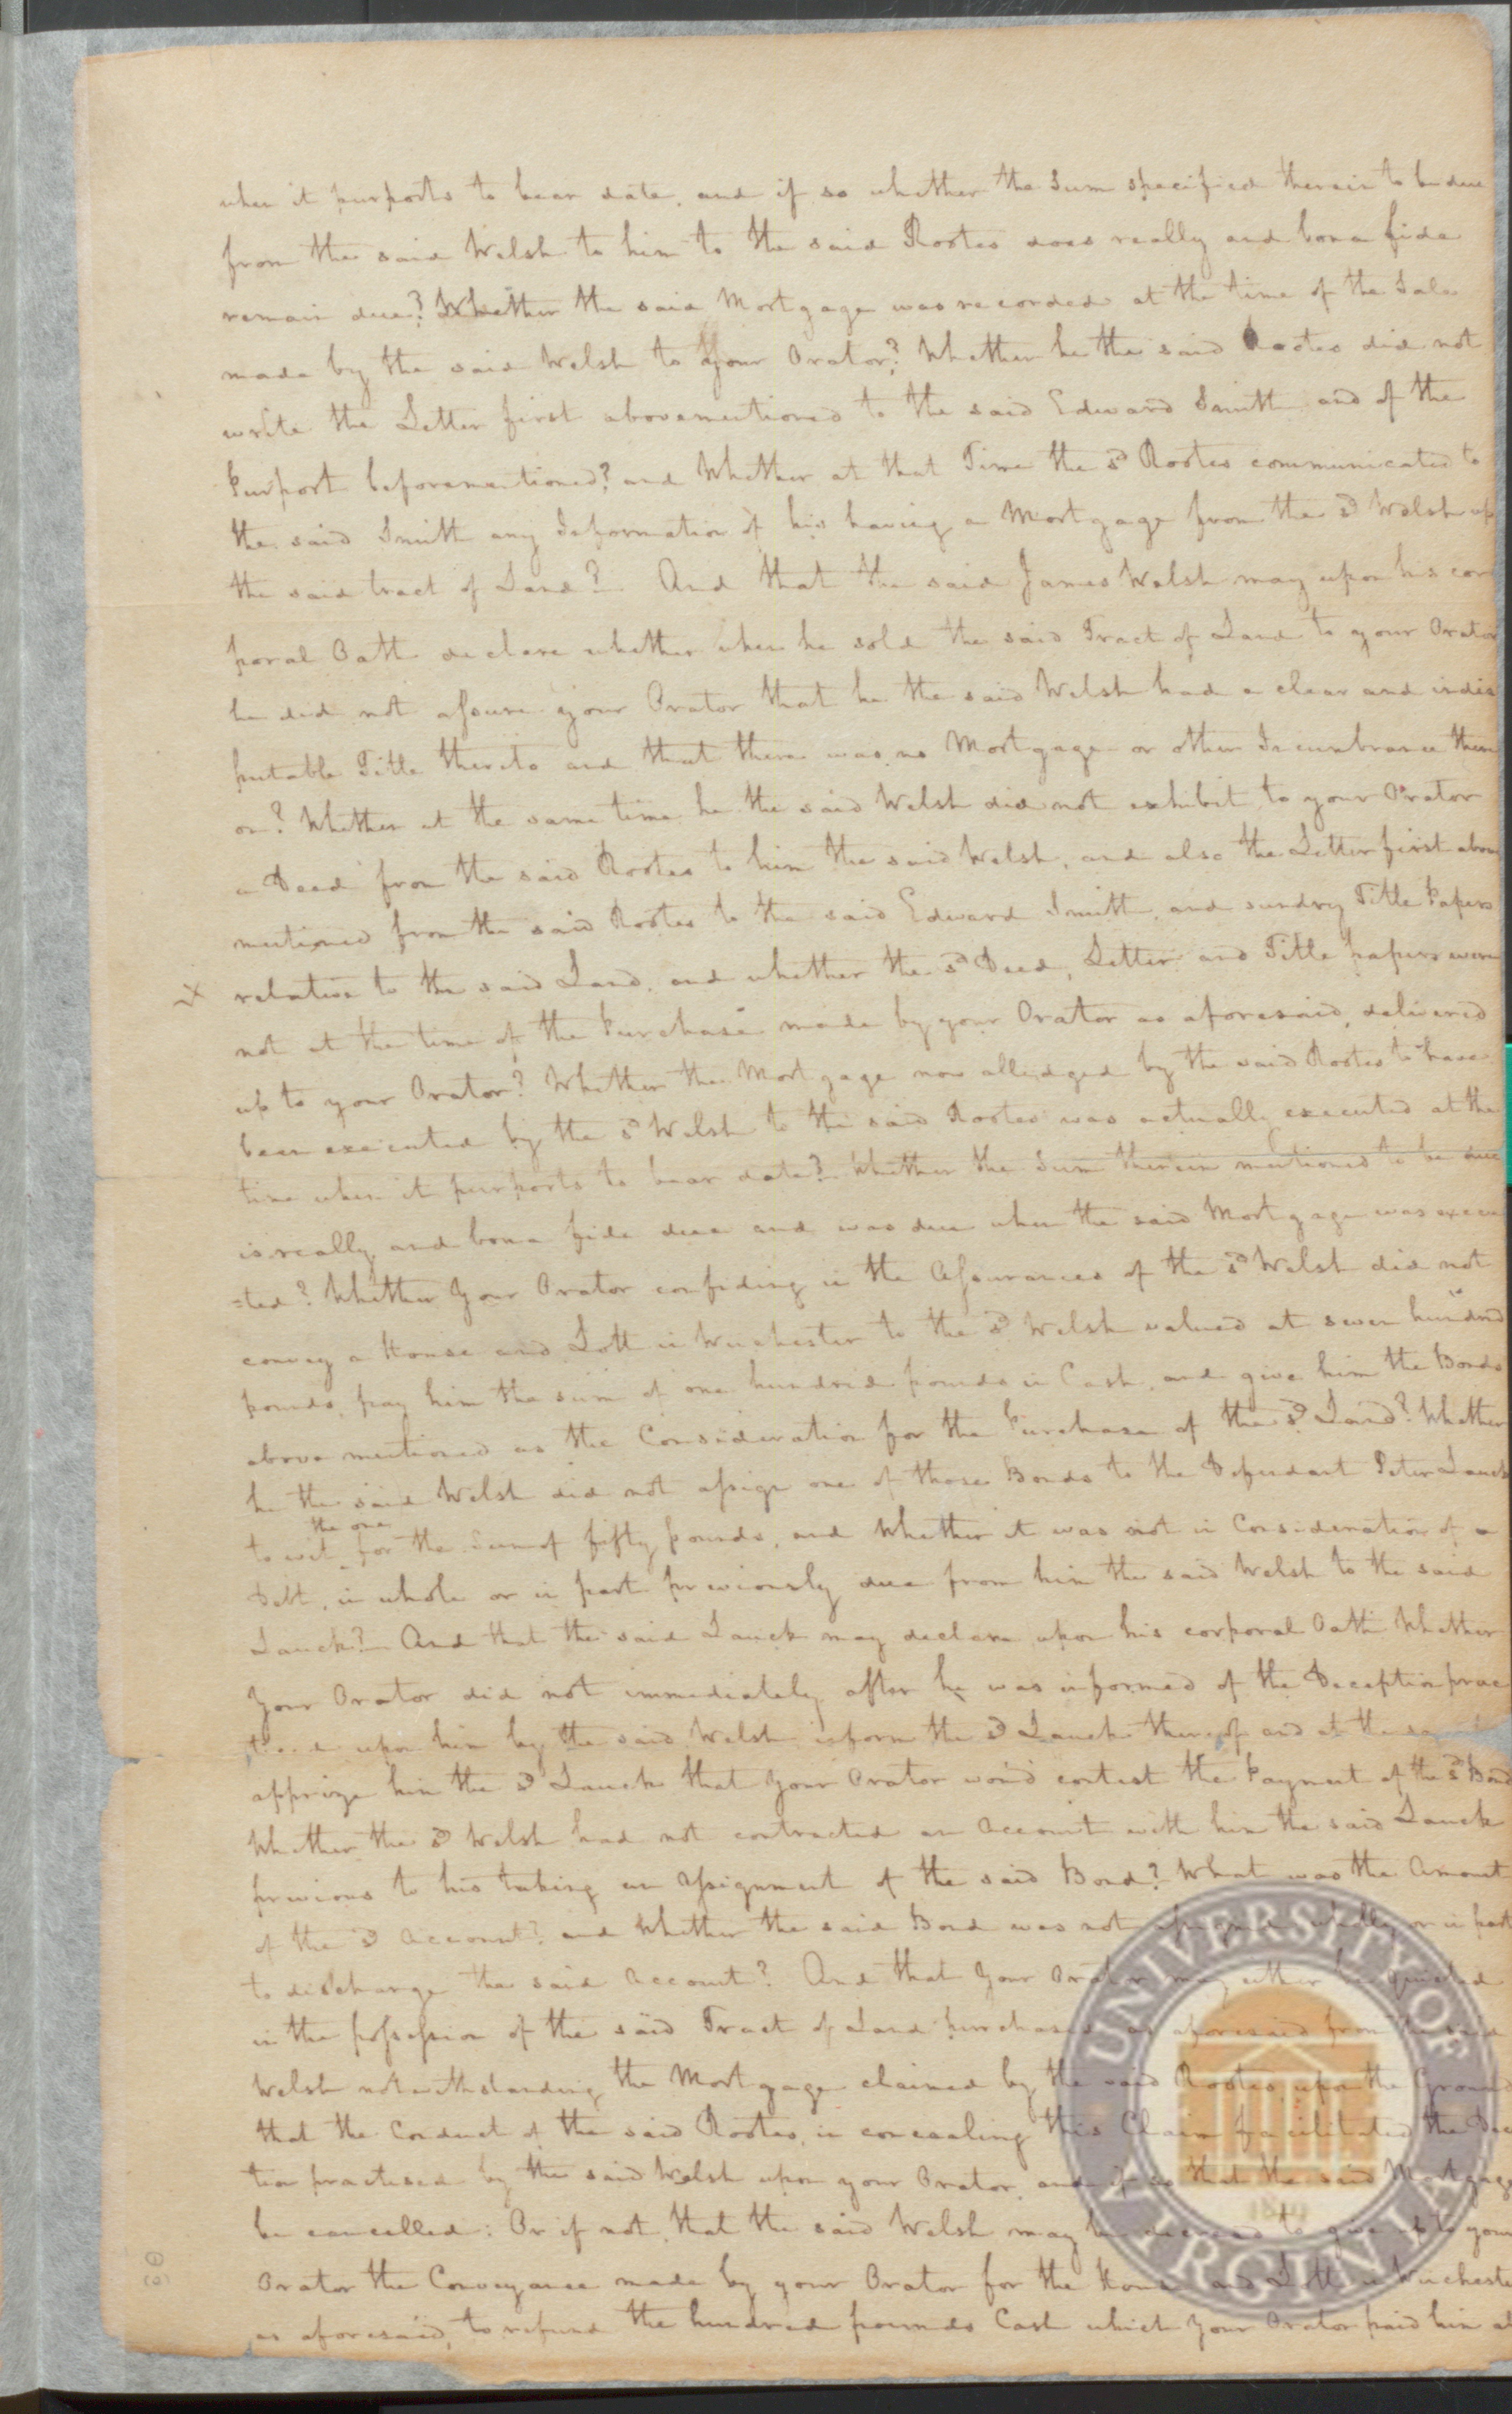 when it purports to bear date, and if so whether the Sum specified therein to be due
from the said Welsh to him to the said Rootes does really and bona fide
remain due? Whether the said Mortgage was recorded at the time of the Sale
made by the said Welsh to Your Orator? Whether he the said Rootes did not
write the Letter first abovementioned to the said Edward Smith and of the
Purport beforementioned? and Whether at that Time the sd Rootes communicated to
the said Smith any Information of his having a Mortgage from the sd Welsh up
the said tract of Land? And that the said James Welsh may upon his cor
poral Oath declare whether when he sold the said Tract of Land to your Orator
he did not assure your Orator that he the said Welsh had a clear and indis
putable Title thereto and that there was no Mortgage or other Incumbrance there
on? Whether at the same time he the said Welsh did not exhibit to your Orator
a Deed from the said Rootes to him the said Welsh, and also the Letter first above
mentioned from the said Rootes to the said Edward Smith, and sundry Title Papers
x relative to the said Land, and whether the sd Deed, Letter and Title papers were
not at the time of the Purchase made by your Orator as aforesaid, delivered
up to your Orator? Whether the Mortgage now alledged by the said Rootes to have
been executed by the sd Welsh to the said Rootes was actually executed at the
time when it purports to bear date? Whether the Sum therein mentioned to be due
is really and bona fide due and was due when the said Mortgage was execu
=ted? Whether Your Orator confiding in the Assurances of the sd Welsh did not
convey a House and Lott in Winchester to the sd Welsh valued at seven hundred
pounds, pay him the sum of one hundred pounds in Cash, and give him the Bonds
above mentioned as the Consideration for the Purchase of the sd Land? Whether
he the said Welsh did not assign one of those Bonds to the Defendant Peter Lauck
the one
to wit for the Sum of fifty pounds, and Whether it was not in Consideration of a
Debt, in whole or in part previously due from him the said Welsh to the said
Lauck? And that the said Lauck may declare upon his corporal Oath Whether
Your Orator did not immediately after he was informed of the Deception prac
upon him by the said Welsh inform the sd Lauck thereof and at the
apprize him the sd Lauck that Your Orator wou'd contest the Payment of the sd Bond
Whether the sd Welsh had not contracted an Account with him the said Lauck
previous to his taking an Assignment of the said Bond? What was the Amount
of the sd Account? and Whether the said Bond was not assigned wholly or in part
to discharge the said Account? And that Your Orator may either be quieted
in the possession of the said Tract of Land purchased as aforesaid from the said
Welsh notwithstanding the Mortgage claimed by the said Rootes upon the Ground
that the Conduct of the said Rootes, in concealing this Claim facilitated the Dec
tion practised by the said Welsh upon your Orator, and if so that the said Mortgage
be cancelled: Or if not, that the said Welsh may be decreed to give up to your
Orator the Conveyance made by your Orator for the House and Lott in Wincheste
as aforesaid, to refund the hundred pounds Cash which Your Orator paid him at
UNIVERSITY OF VIRGINIA
1819